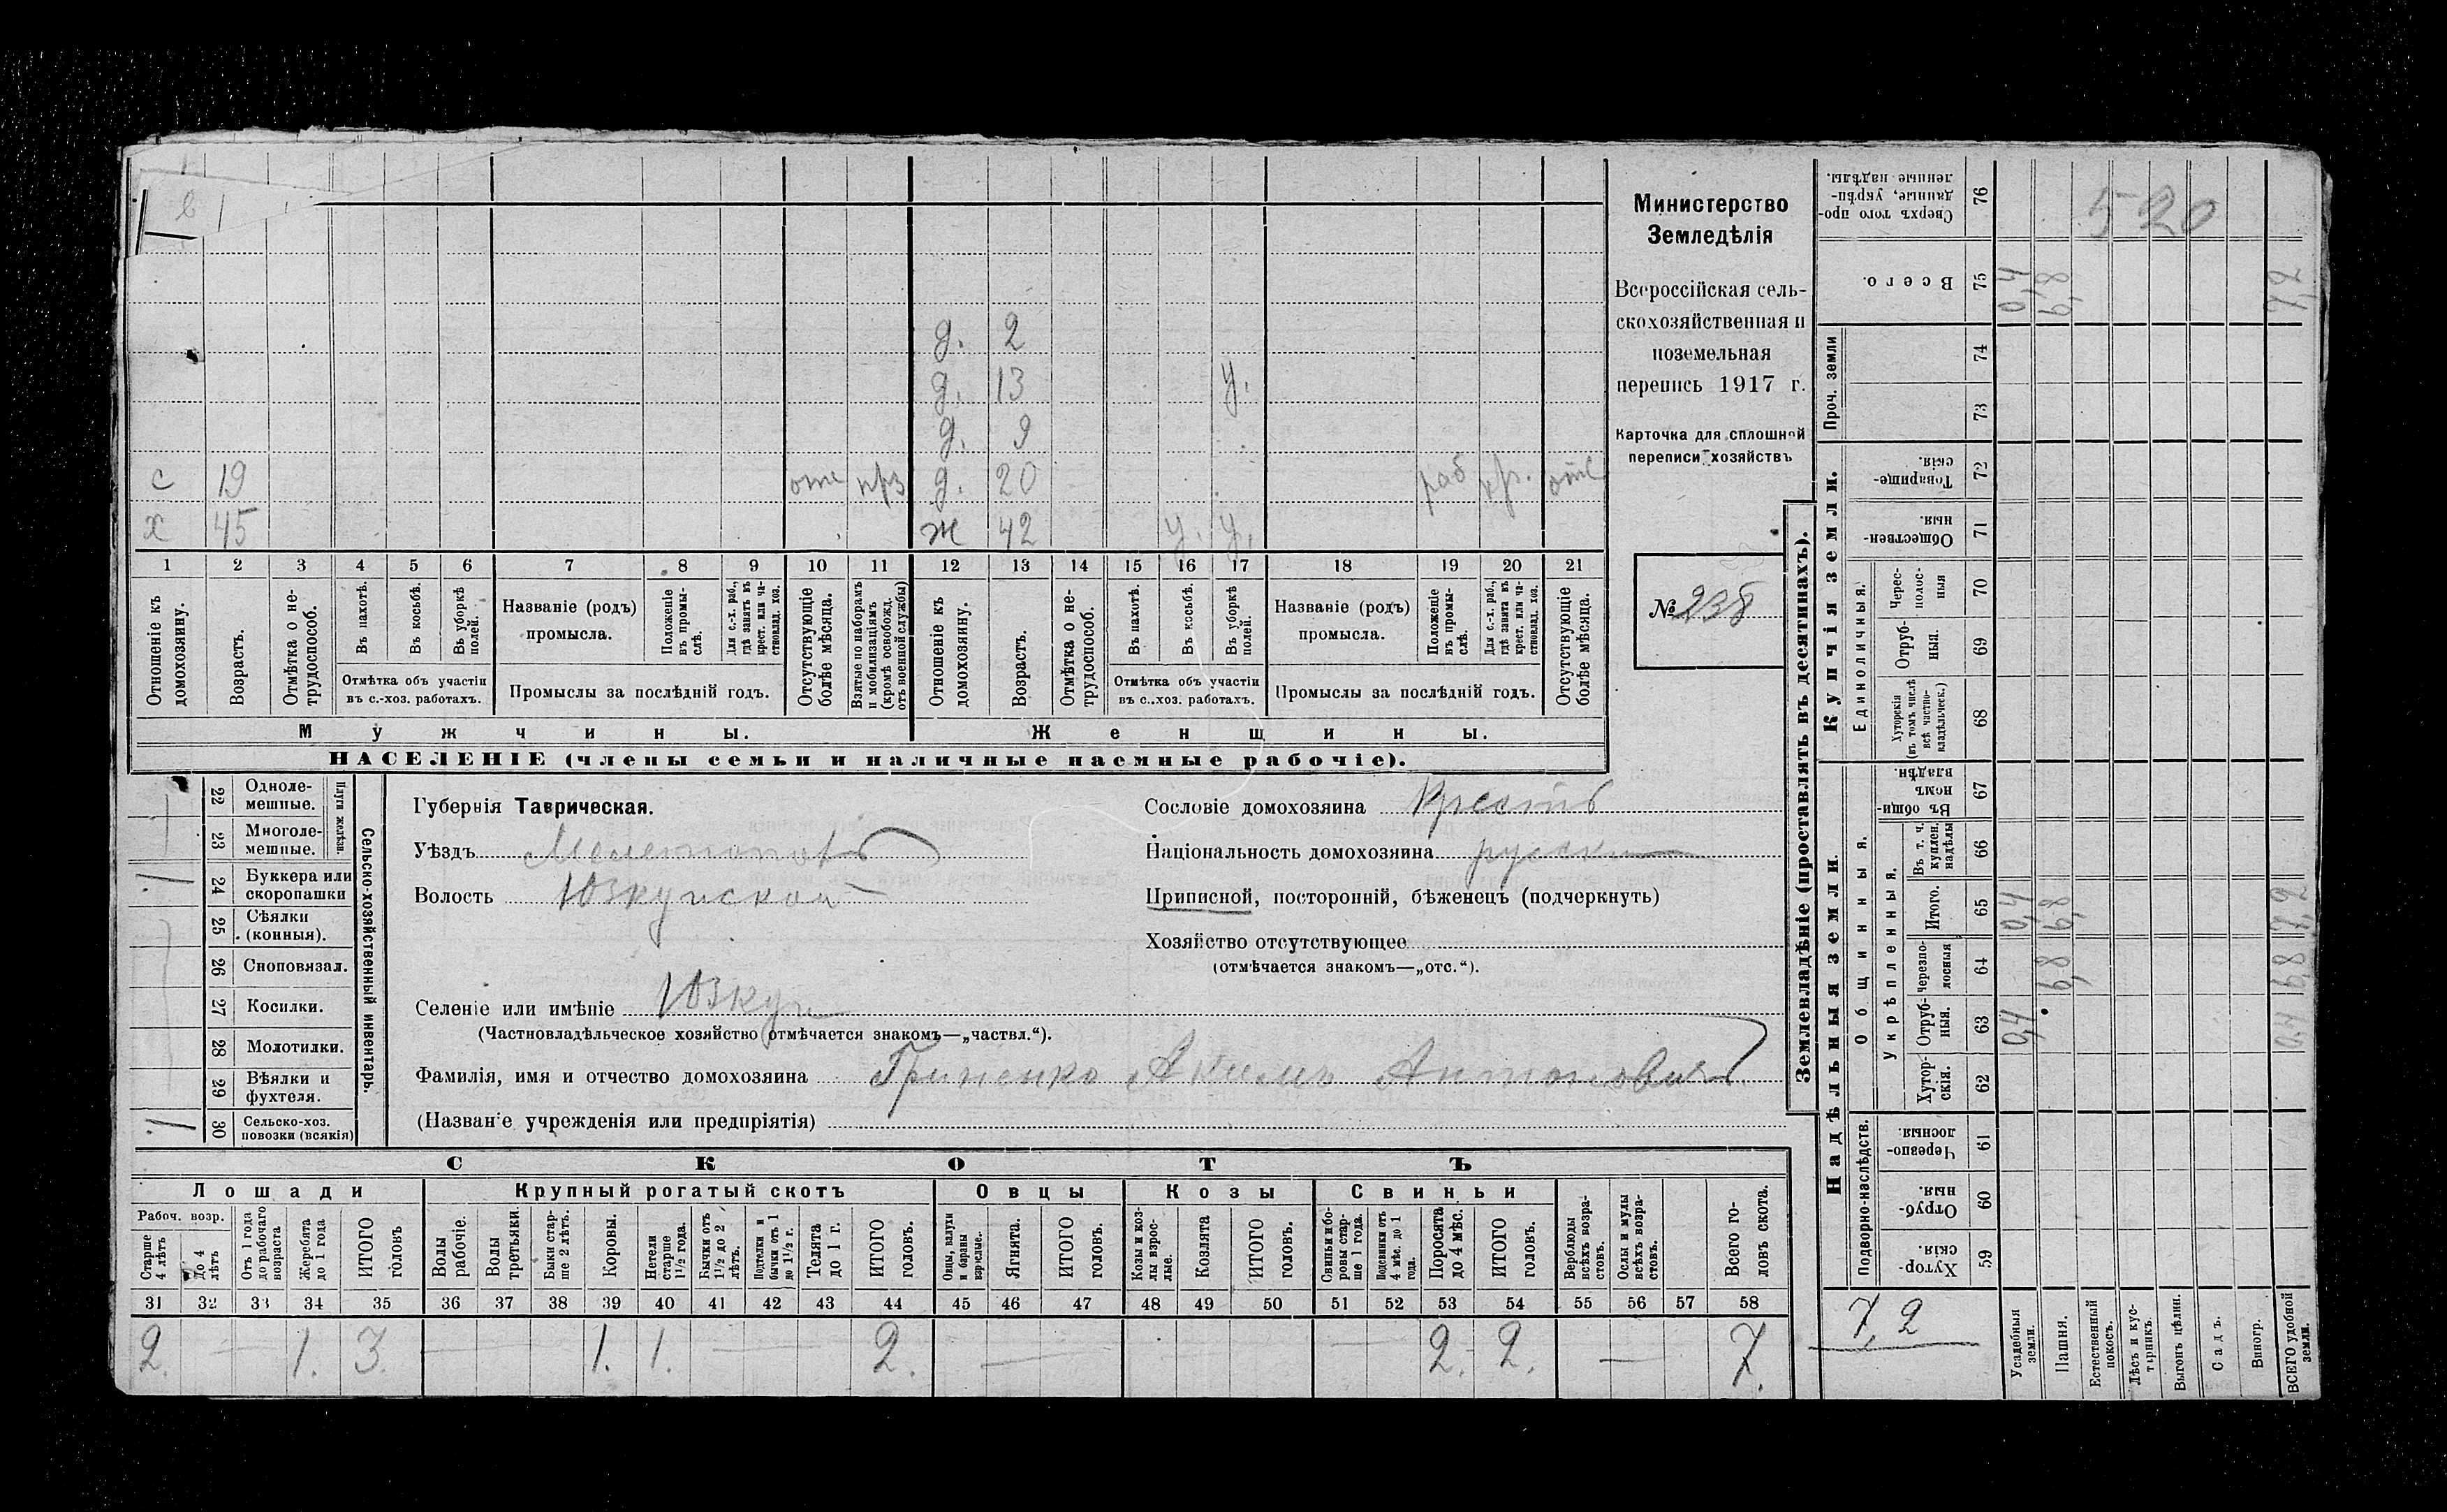 д. 2
д. 13 у.
д. 9
с 19 отс прз д. 20 раб кр. отс
х 45 ж 42 у. у.
1 2 3 4 5 6 7 8 9 10 11 12 13 14 15 16 17 18 19 20 21
Отношеніе къ домохозяину.
Возрастъ.
Отмѣтка о нетрудоспособ.
Въ пахотѣ.
Въ косьбѣ.
Въ уборкѣ полей.
Отмѣтка объ участіи въ с.-хоз. работахъ.
Названіе (родъ) промысла.
Положеніе въ промыслѣ.
Для с.-х. раб., гдѣ занятъ въ крест. или частновлад. хоз.
Промыслы за послѣдній годъ.
Отсутствующіе болѣе мѣсяца.
Взятые по наборамъ и мобилизаціямъ (кромѣ освобожд. отъ военной службы)
Отношеніе къ домохозяину.
Возрастъ.
Отмѣтка о нетрудоспособ.
Въ пахотѣ.
Въ косьбѣ.
Въ уборкѣ полей.
Отмѣтка объ участіи въ с.-хоз. работахъ.
Названіе (родъ) промысла.
Положеніе въ промыслѣ.
Для с.-х. раб., гдѣ занята въ крест. или частновлад. хоз.
Промыслы за послѣдній годъ.
Отсутствующіе болѣе мѣсяца.
Мужчины. Женщины.
НАСЕЛЕНІЕ (члены семьи и наличные наемные рабочіе).
Министерство
Земледѣлія
Всероссійская сель-
скохозяйственная и
поземельная
перепись 1917 г.
Карточка для сплошной
переписи хозяйствъ
№ 238
22 Одноле-мешные.
23 Многоле-мешные.
Плуги желѣзн.
24 Буккера или скоропашки
25 Сѣялки (конныя).
26 Сноповязал.
27 Косилки.
28 Молотилки.
29 Вѣялки и фухтеля.
30 Сельско-хоз. повозки (всякія)
Сельско-хозяйственный инвентарь.
Губернія Таврическая.
Уѣздъ Мелитопол
Волость Юзкуйской
Селеніе или имѣніе Юзкуи
(Частновладѣльческое хозяйство отмѣчается знакомъ—„частвл.“).
Фамилія, имя и отчество домохозяина Гриненко Акимъ Антоновичъ
(Названіе учрежденія или предпріятія)
Сословіе домохозяина Крестьъ
Національность домохозяина русски
Приписной, посторонній, бѣженецъ (подчеркнуть)
Хозяйство отсутствующее
(отмѣчается знакомъ—„отс.“).
СКОТЪ
Лошади Крупный рогатый скотъ Овцы Козы Свиньи
Рабоч. возр.
Старше 4 лѣтъ
До 4 лѣтъ
Отъ 1 года до рабочаго возраста
Жеребята до 1 года
ИТОГО головъ
Волы рабочіе.
Волы третьяки.
Быки старше 2 лѣтъ.
Коровы.
Нетели старше 1½ года.
Бычки отъ 1½ до 2 лѣтъ.
Подтелки и бычки отъ 1 до 1½ г.
Телята до 1 г.
ИТОГО головъ.
Овцы, валухи и бараны взрослые.
Ягнята.
ИТОГО головъ.
Козы и козлы взрослые.
Козлята
ИТОГО головъ.
Свиньи и боровы старше 1 года.
Подсвинки отъ 4 мѣс. до 1 года.
Поросята до 4 мѣс.
ИТОГО головъ.
Верблюды всѣхъ возрастовъ.
Ослы и мулы всѣхъ возрастовъ.
Всего головъ скота.
31 32 33 34 35 36 37 38 39 40 41 42 43 44 45 46 47 48 49 50 51 52 53 54 55 56 57 58
2. 1. 3. 1. 1. 2. 2. 2. 7.
Землевладѣніе (проставлять въ десятинахъ).
Купчія земли.
Надѣльныя земли.
Сверхъ того проданные, укрѣпленные надѣлы. 76 520
Всего. 75 0,4 6,8 7,2
Проч. земли
74
73
Товарищескія. 72
Общественныя. 71
Единоличныя.
Черезполосныя 70
Отрубныя. 69
Хуторскія (въ томъ числѣ всѣ частновладѣльческ.) 68
Въ общинномъ владѣн. 67
Общинныя.
Укрѣпленныя.
Въ т. ч. куплен. надѣлы 66
Итого. 65 0,4 6,8 7,2
Черезполосныя 64 6,8 6,8
Отрубныя. 63 0,4 0,4
Хуторскія. 62
Подворно-наслѣдств.
Черезполосныя. 61
Отрубныя. 60
Хуторскія. 59
7,2
Усадебныя земли.
Пашня.
Естественный покосъ.
Лѣсъ и кустарникъ.
Выгонъ цѣлин.
Садъ.
Виногр.
ВСЕГО удобной земли.